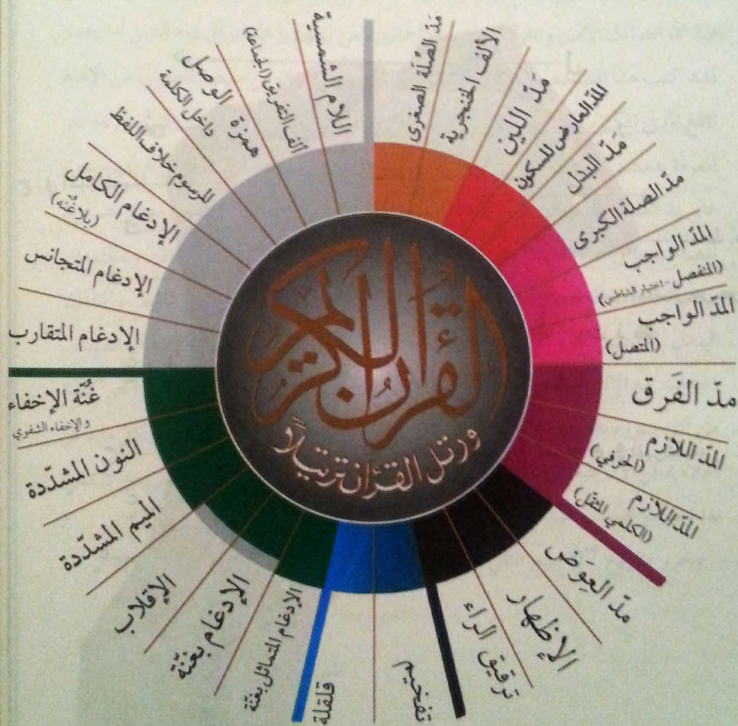 القرآن الكريم
ورتل القرآن ترتيلاً
مَدّ الصِّلَة الصغرى
الألف الخنجرية
مَدّ اللين
المدّ العارض للسكون
مدّ البدل
مدّ الصلة الكبرى
المدّ الواجب
(المنفصل - اختيار الشاطبي)
المدّ الواجب
(المتصل)
مدّ الفَرق
المدّ اللازم
(الحرفي)
المدّ اللازم
(الكلمي المثقل)
مدّ العِوَض
الإظهار
ترقيق الراء
تفخيم
قلقلة
الإدغام المتماثل بغنّة
الإدغام بغنّة
الإقلاب
الميم المشدّدة
النون المشدّدة
غُنّة الإخفاء
والإخفاء الشفوي
الإدغام المتقارب
الإدغام المتجانس
الإدغام الكامل
(بلا غُنّة)
المرسوم خلاف اللفظ
همزة الوصل
داخل الكلمة
ألف التفريق (الجماعة)
اللام الشمسية